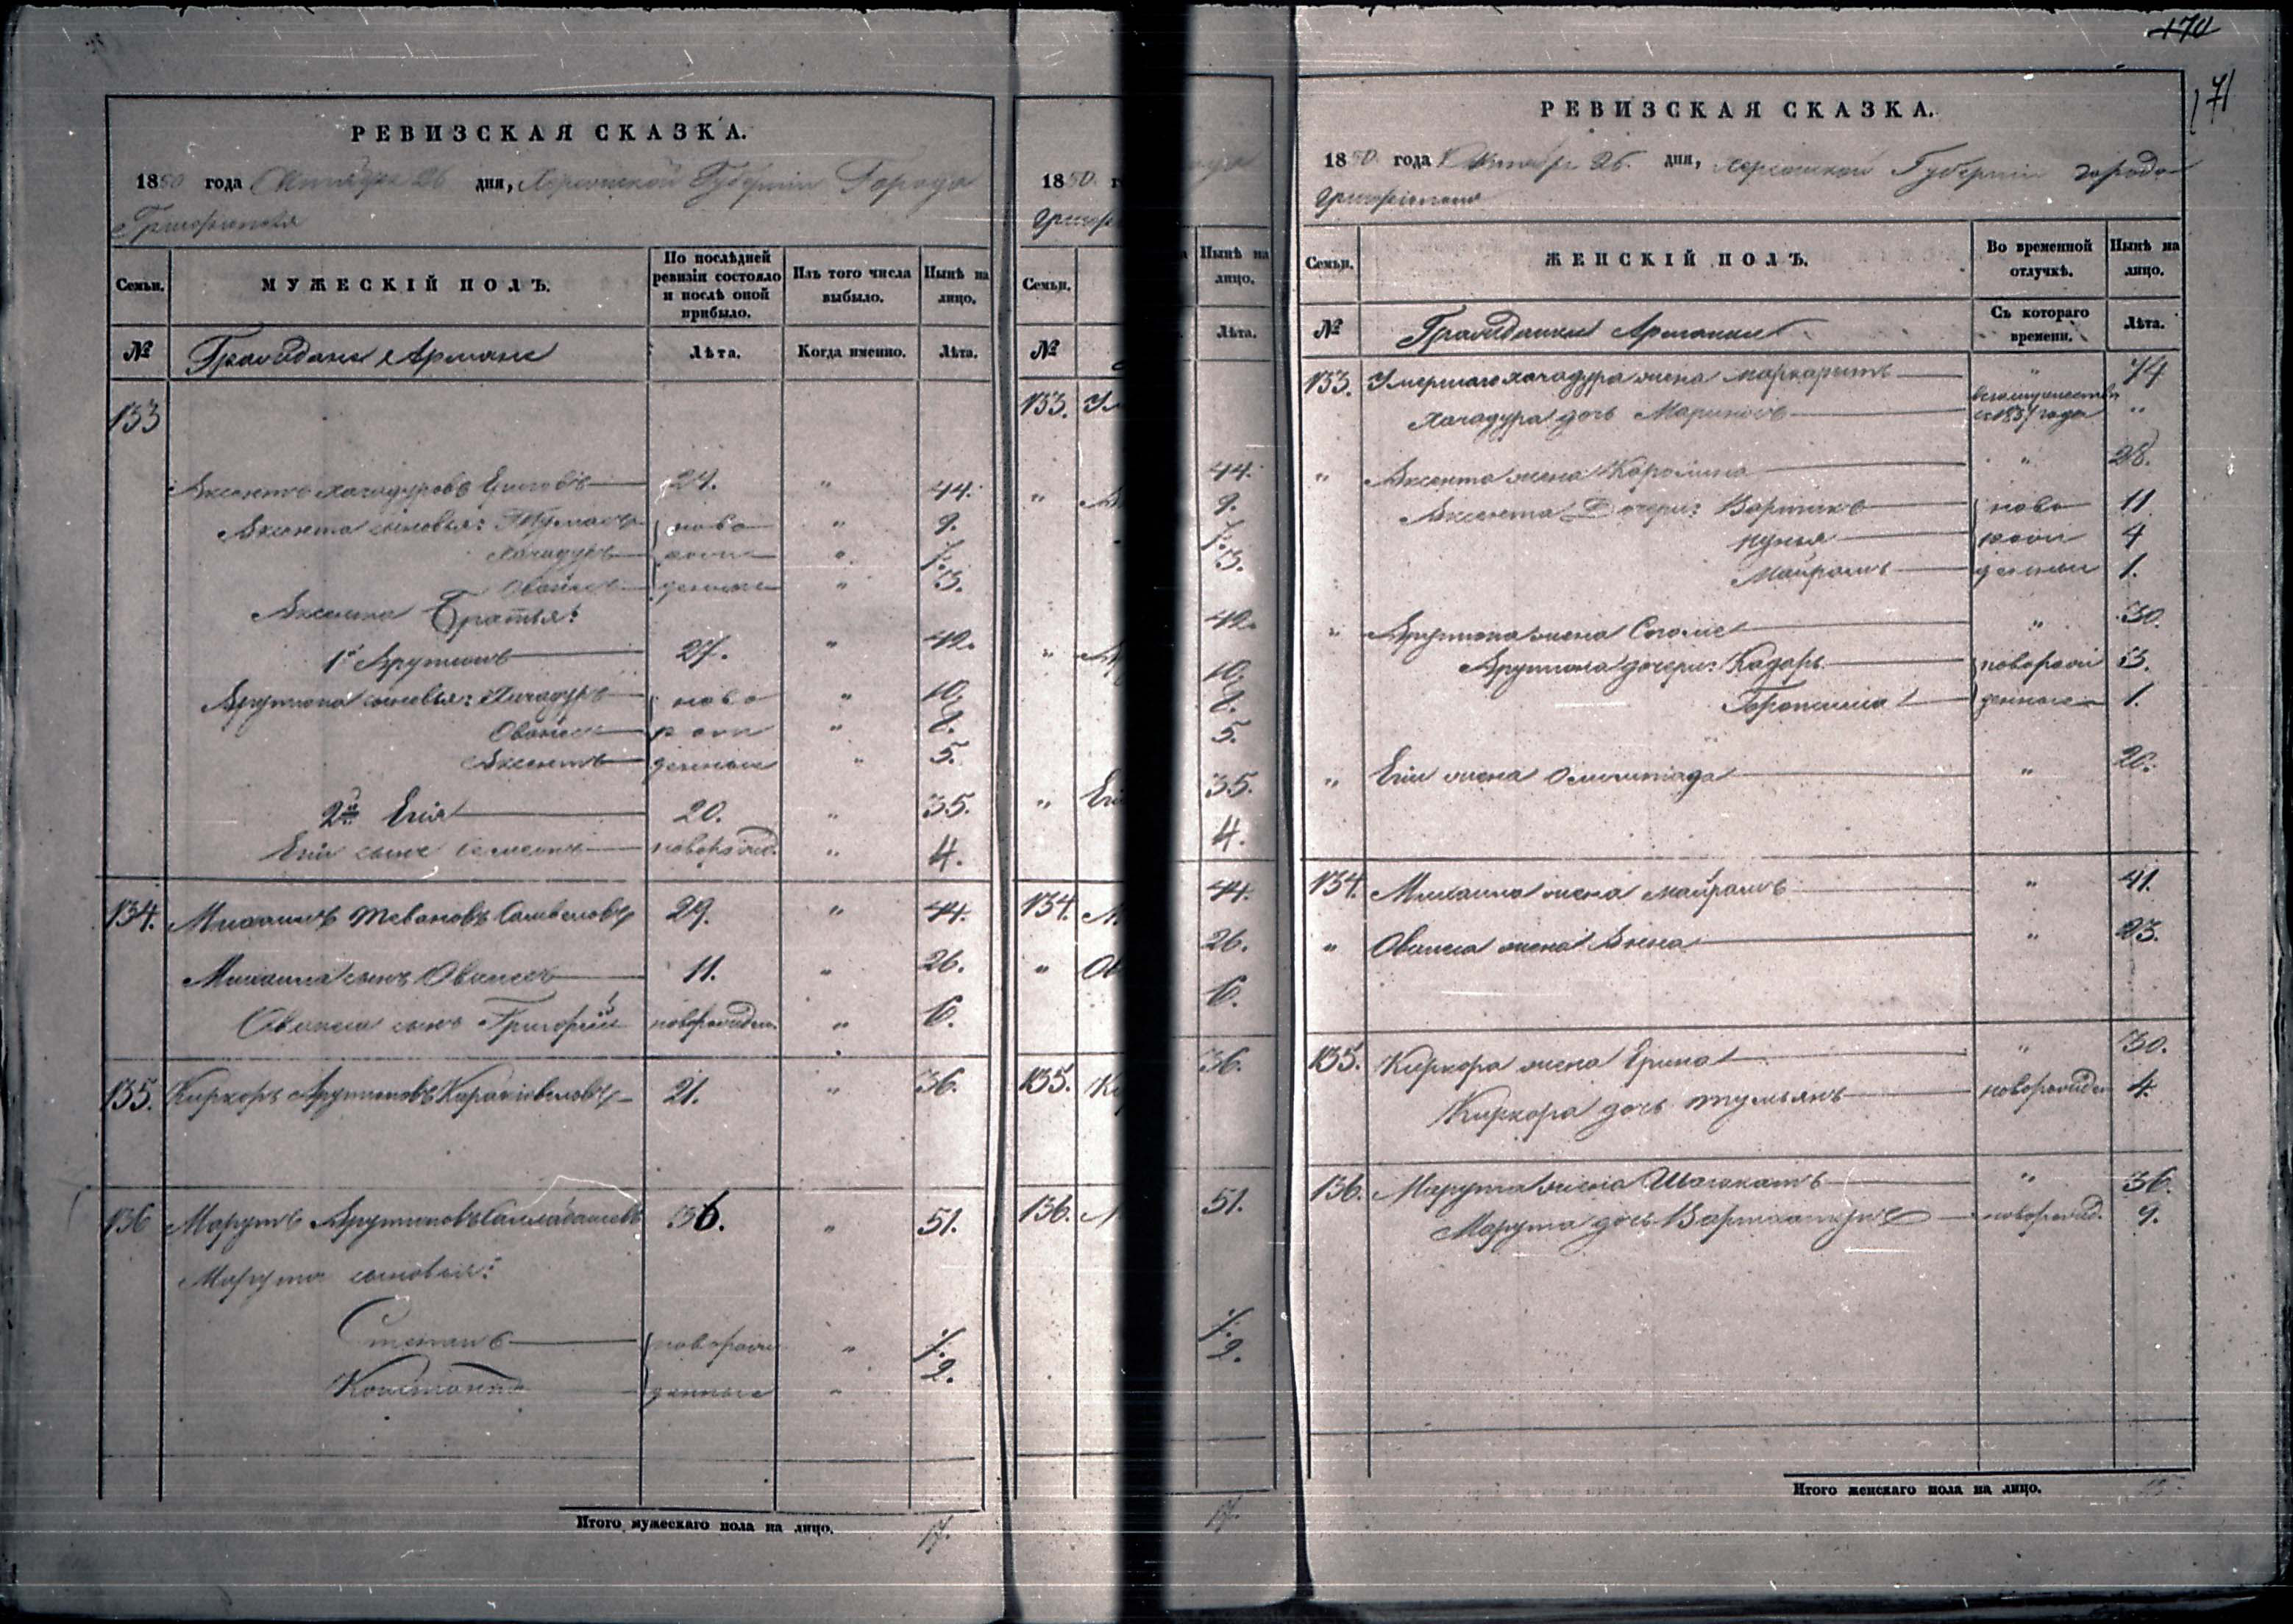 РЕВИЗСКАЯ СКАЗКА.
1850 года Октября 26 дня, Херсонской Губернии Города
Григориополя
Семьи.
МУЖЕСКІЙ ПОЛЪ.
По послѣдней ревизіи состояло и послѣ оной прибыло.
Изъ того числа выбыло.
Нынѣ на лицо.
№
Граждане Армяне
Лѣта.
Когда именно.
Лѣта.
133
Аксентъ Хачадуровъ 24. " 44.
Аксента сыновья: Тумасъ ново " 9.
Хачадуръ рож " 7.
Ованесъ денные " 3.
Аксента Братья:
1й Арутюнъ 27. " 42.
Арутюна сыновья: Хачадуръ ново " 10.
Ованесъ рож " 8.
Аксентъ денные " 5.
2й Егія 20. " 35.
Егіи сынъ новорожд. " 4.
134. Михаилъ Тевановъ 29. " 44.
Михаила сынъ Ованесъ 11. " 26.
Ованеса сынъ Григорій новорожден. " 6.
135. Киркоръ Арутюновъ 21. " 36.
136 Марутъ Арутюновъ 36. " 51.
Марута сыновья:
Степанъ новорож " 7.
денные " 2.
Итого мужескаго пола на лицо. 17.
1850. г
Григор
Семьи.
№
133. Ум
"
"
" Егі
134. М
" Ов
135. Ки
136. М
Нынѣ на лицо.
Лѣта.
44.
9.
7.
3.
42.
10.
8.
5.
35.
4.
44.
26.
6.
36.
51.
7.
2.
17.
170
171
РЕВИЗСКАЯ СКАЗКА.
1850 года Октября 26. дня, Херсонской Губернии города
Григориополя
Семьи.
ЖЕНСКІЙ ПОЛЪ.
Во временной отлучкѣ.
Нынѣ на лицо.
№
Гражданки Армянки
Съ котораго времени.
Лѣта.
133. Умершаго Хачадура жена Маркаритъ " 74
Хачадура дочь въ замужествѣ съ 1837 года "
" Аксента жена Каролина " 28.
Аксента Дочери: Вартикъ ново 11.
рож 4
Майрамъ денные 1.
" Арутюна жена " 30.
Арутюна дочери: Кадаръ новорож 3.
денные 1.
" Егіи жена Олимпіада " 20.
134. Михаила жена Майрамъ " 41.
" Ованеса жена Анна " 23.
135. Киркора жена Ерина " 30.
Киркора дочь новорожден 4.
136. Марута жена Шагакатъ " 36.
Марута дочь новорожд. 9.
Итого женскаго пола на лицо. 15.